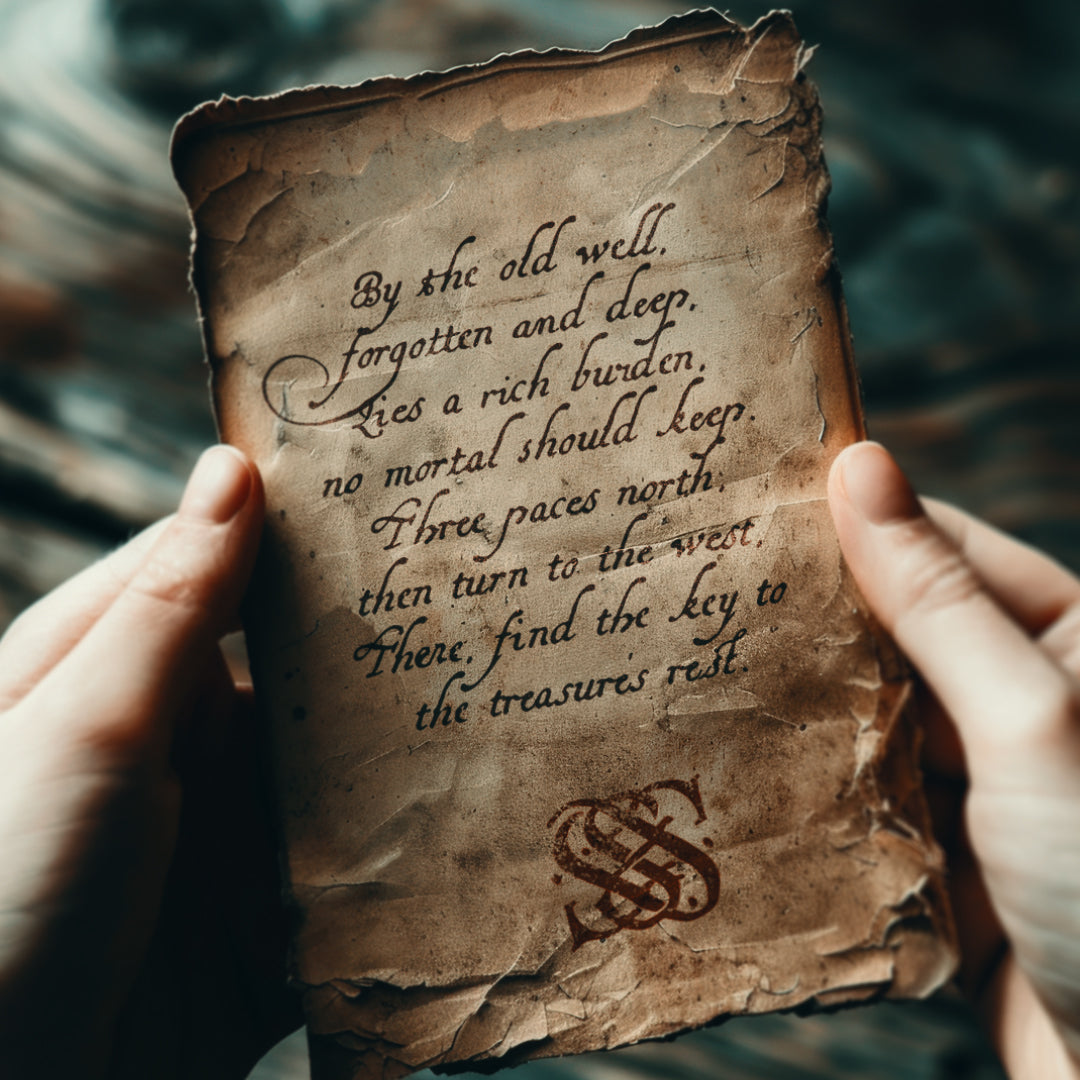 By the old well,
forgotten and deep,
Lies a rich burden,
no mortal should keep.
Three paces north,
then turn to the west,
There, find the key to
the treasure's rest.
SS